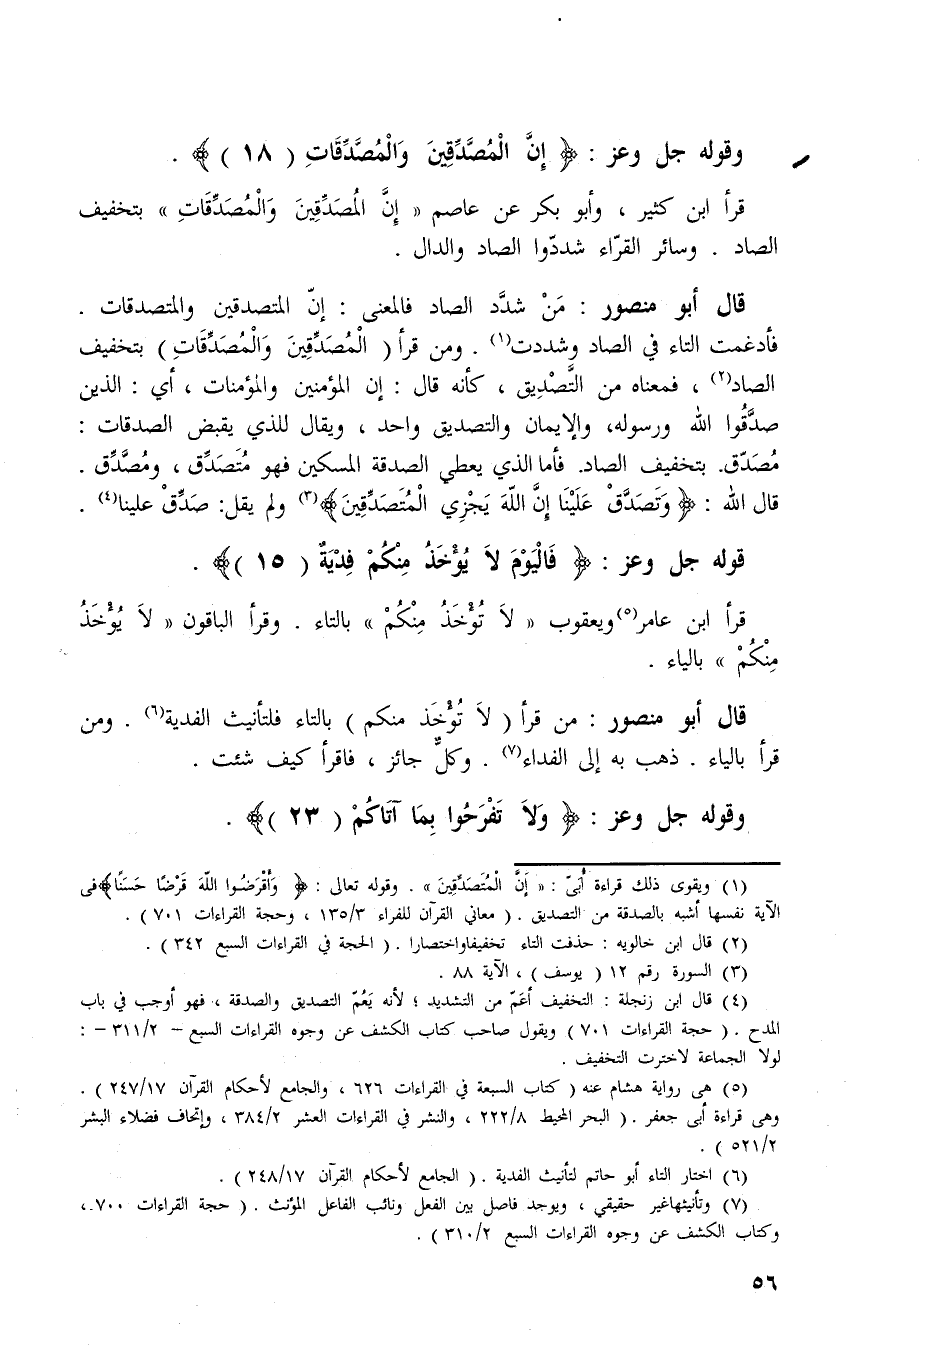 وقوله جل وعز : ﴿ إِنَّ الْمُصَّدِّقِينَ وَالْمُصَّدِّقَاتِ ( ١٨ ) ﴾ .
قرأ ابن كثير ، وأبو بكر عن عاصم « إِنَّ الْمُصَدِّقِينَ وَالْمُصَدِّقَاتِ » بتخفيف
الصاد . وسائر القرّاء شددّوا الصاد والدال .
قال أبو منصور : مَنْ شدَّد الصاد فالمعنى : إنّ المتصدقين والمتصدقات .
فأدغمت التاء في الصاد وشددت(١) . ومن قرأ ( الْمُصَدِّقِينَ وَالْمُصَدِّقَاتِ ) بتخفيف
الصاد(٢) ، فمعناه من التَّصْدِيق ، كأنه قال : إن المؤمنين والمؤمنات ، أي : الذين
صدَّقُوا الله ورسوله، والإيمان والتصديق واحد ، ويقال للذي يقبض الصدقات :
مُصَدّق. بتخفيف الصاد. فأما الذي يعطي الصدقة المسكين فهو مُتَصَدِّق ، ومُصَّدِّق .
قال الله : ﴿ وَتَصَدَّقْ عَلَيْنَا إِنَّ اللَّهَ يَجْزِي الْمُتَصَدِّقِينَ ﴾(٣) ولم يقل: صَدِّقْ علينا(٤) .
قوله جل وعز : ﴿ فَالْيَوْمَ لاَ يُؤْخَذُ مِنْكُمْ فِدْيَةٌ ( ١٥ ) ﴾ .
قرأ ابن عامر(٥) ويعقوب « لاَ تُؤْخَذُ مِنْكُمْ » بالتاء . وقرأ الباقون « لاَ يُؤْخَذُ
مِنْكُمْ » بالياء .
قال أبو منصور : من قرأ ( لاَ تُؤْخَذ منكم ) بالتاء فلتأنيث الفدية(٦) . ومن
قرأ بالياء . ذهب به إلى الفداء(٧) . وكلٌّ جائز ، فاقرأ كيف شئت .
وقوله جل وعز : ﴿ وَلاَ تَفْرَحُوا بِمَا آتَاكُمْ ( ٢٣ ) ﴾ .
(١) ويقوى ذلك قراءة أُبَىّ : « إِنَّ الْمُتَصَدِّقِينَ » . وقوله تعالى : ﴿ وَأَقْرَضُوا اللَّهَ قَرْضًا حَسَنًا ﴾ فى
الآية نفسها أشبه بالصدقة من التصديق . ( معاني القرآن للفراء ١٣٥/٣ ، وحجة القراءات ٧٠١ ) .
(٢) قال ابن خالويه : حذفت التاء تخفيفا واختصارا . ( الحجة في القراءات السبع ٣٤٢ ) .
(٣) السورة رقم ١٢ ( يوسف ) ، الآية ٨٨ .
(٤) قال ابن زنجلة : التخفيف أعَمّ من التشديد ؛ لأنه يَعُمّ التصديق والصدقة ، فهو أوجب في باب
المدح . ( حجة القراءات ٧٠١ ) ويقول صاحب كتاب الكشف عن وجوه القراءات السبع – ٣١١/٢ – :
لولا الجماعة لاخترت التخفيف .
(٥) هى رواية هشام عنه ( كتاب السبعة في القراءات ٦٢٦ ، والجامع لأحكام القرآن ٢٤٧/١٧ ) .
وهى قراءة أبى جعفر . ( البحر المحيط ٢٢٢/٨ ، والنشر في القراءات العشر ٣٨٤/٢ ، وإتحاف فضلاء البشر
٥٢١/٢ ) .
(٦) اختار التاء أبو حاتم لتأنيث الفدية . ( الجامع لأحكام القرآن ٢٤٨/١٧ ) .
(٧) وتأنيثها غير حقيقي ، ويوجد فاصل بين الفعل ونائب الفاعل المؤنث . ( حجة القراءات ٧٠٠ ،
وكتاب الكشف عن وجوه القراءات السبع ٣١٠/٢ ) .
٥٦